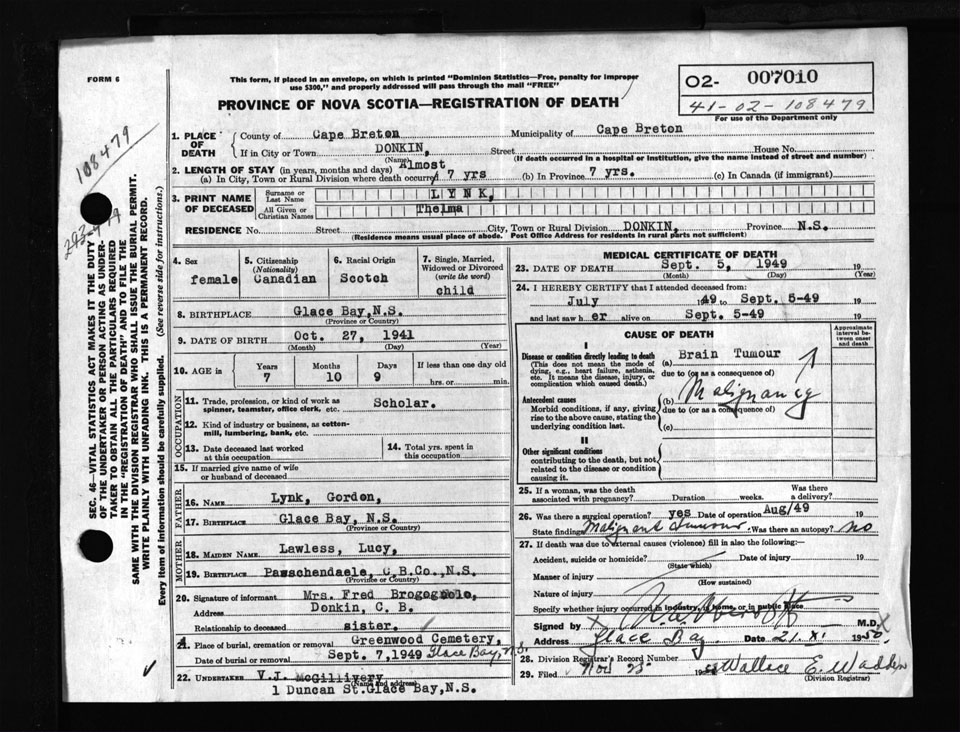 FORM 6
This form, if placed in an envelope, on which is printed "Dominion Statistics—Free, penalty for improper
use $300," and properly addressed will pass through the mail "FREE"
O2- 007010
41-02-108479
For use of the Department only
PROVINCE OF NOVA SCOTIA—REGISTRATION OF DEATH
108479
SEC. 46—VITAL STATISTICS ACT MAKES IT THE DUTY
OF THE UNDERTAKER OR PERSON ACTING AS UNDER-
TAKER TO OBTAIN ALL THE PARTICULARS REQUIRED
IN THE "REGISTRATION OF DEATH" AND TO FILE THE
SAME WITH THE DIVISION REGISTRAR WHO SHALL ISSUE THE BURIAL PERMIT.
WRITE PLAINLY WITH UNFADING INK. THIS IS A PERMANENT RECORD.
Every item of information should be carefully supplied. (See reverse side for instructions.)
1. PLACE OF DEATH
County of Cape Breton Municipality of Cape Breton
If in City or Town DONKIN, Street House No.
(Name) (If death occurred in a hospital or institution, give the name instead of street and number)
2. LENGTH OF STAY (in years, months and days) Almost
(a) In City, Town or Rural Division where death occurred 7 yrs (b) In Province 7 yrs. (c) In Canada (if immigrant)
3. PRINT NAME OF DECEASED
Surname or Last Name LYNK,
All Given or Christian Names Thelma
RESIDENCE No. Street City, Town or Rural Division DONKIN, Province N.S.
(Residence means usual place of abode. Post Office Address for residents in rural parts not sufficient)
4. Sex female
5. Citizenship (Nationality) Canadian
6. Racial Origin Scotch
7. Single, Married, Widowed or Divorced (write the word) child
8. BIRTHPLACE Glace Bay, N.S.
(Province or Country)
9. DATE OF BIRTH Oct. 27, 1941
(Month) (Day) (Year)
10. AGE in Years 7 Months 10 Days 9 If less than one day old hrs. or min.
OCCUPATION
11. Trade, profession, or kind of work as spinner, teamster, office clerk, etc. Scholar.
12. Kind of industry or business, as cotton-mill, lumbering, bank, etc.
13. Date deceased last worked at this occupation
14. Total yrs. spent in this occupation
15. If married give name of wife or husband of deceased
FATHER
16. NAME Lynk, Gordon,
17. BIRTHPLACE Glace Bay, N.S.
(Province or Country)
MOTHER
18. MAIDEN NAME Lawless, Lucy,
19. BIRTHPLACE Passchendaele, C.B.Co., N.S.
(Province or Country)
20. Signature of informant Mrs. Fred
Address Donkin, C. B.
Relationship to deceased sister.
21. Place of burial, cremation or removal Greenwood Cemetery,
Date of burial or removal Sept. 7, 1949 Glace Bay, N.S.
22. UNDERTAKER V.J. McGillivery
(Name and address)
1 Duncan St. Glace Bay, N.S.
MEDICAL CERTIFICATE OF DEATH
23. DATE OF DEATH Sept. 5, 1949 19
(Month) (Day) (Year)
24. I HEREBY CERTIFY that I attended deceased from:
July 49 to Sept. 5-49 19
and last saw h er alive on Sept. 5-49 19
CAUSE OF DEATH
Approximate interval between onset and death
I
Disease or condition directly leading to death
(This does not mean the mode of dying, e.g., heart failure, asthenia, etc. It means the disease, injury, or complication which caused death.)
(a) Brain Tumour
due to (or as a consequence of)
Antecedent causes
Morbid conditions, if any, giving rise to the above cause, stating the underlying condition last.
(b) Malignancy
due to (or as a consequence of)
(c)
II
Other significant conditions
contributing to the death, but not related to the disease or condition causing it.
25. If a woman, was the death associated with pregnancy? Duration weeks. Was there a delivery?
26. Was there a surgical operation? yes Date of operation Aug/49
State findings Malignant tumour Was there an autopsy? no
27. If death was due to external causes (violence) fill in also the following:—
Accident, suicide or homicide? Date of injury 19
(State which)
Manner of injury
(How sustained)
Nature of injury
Specify whether injury occurred in industry, in home, or in public place
Signed by M.D.
Address Glace Bay Date 21.XI 1950.
28. Division Registrar's Record Number
29. Filed Nov 25 19 Wallace E. Wadden
(Division Registrar)